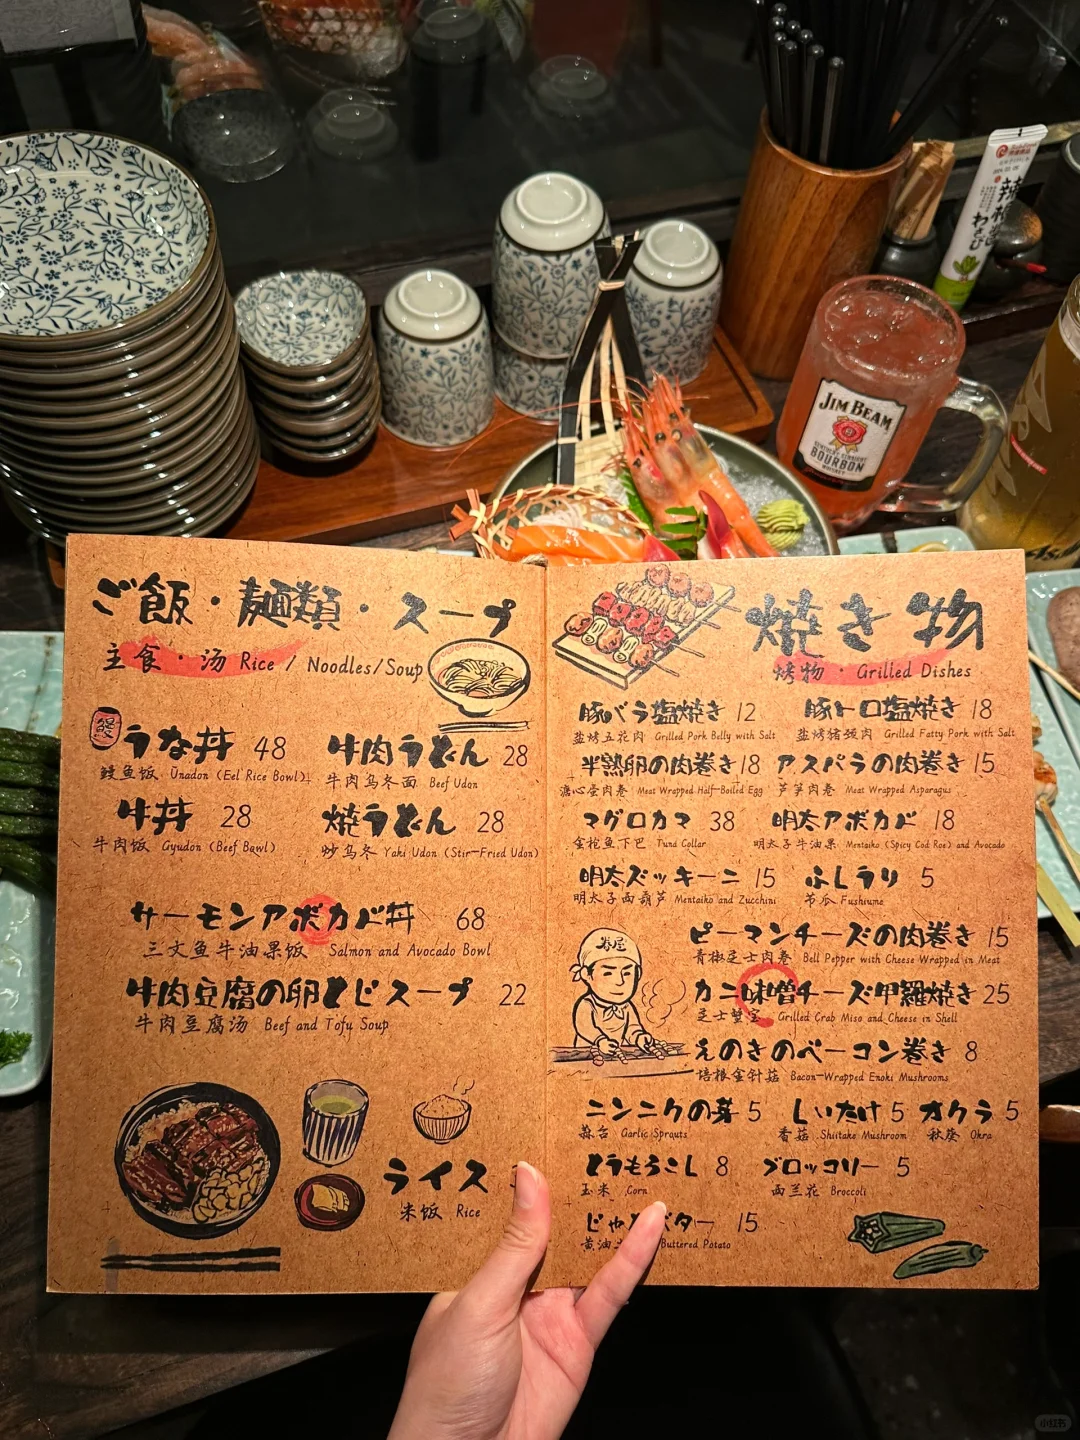 辣根
わさび
JIM BEAM
KENTUCKY STRAIGHT
BOURBON
WHISKEY
ご飯・麺類・スープ
主食・汤 Rice / Noodles/Soup
鰻
うな丼 48
鳗鱼饭 Unadon (Eel Rice Bowl)
牛肉うどん 28
牛肉乌冬面 Beef Udon
牛丼 28
牛肉饭 Gyudon (Beef Bawl)
焼うどん 28
炒乌冬 Yaki Udon (Stir-Fried Udon)
サーモンアボカド丼 68
三文鱼牛油果饭 Salmon and Avocado Bowl
牛肉豆腐の卵とじスープ 22
牛肉豆腐汤 Beef and Tofu Soup
ライス
米饭 Rice
焼き物
烤物・Grilled Dishes
豚バラ塩焼き 12
盐烤五花肉 Grilled Pork Belly with Salt
豚トロ塩焼き 18
盐烤猪颈肉 Grilled Fatty Pork with Salt
半熟卵の肉巻き 18
溏心蛋肉卷 Meat Wrapped Half-Boiled Egg
アスパラの肉巻き 15
芦笋肉卷 Meat Wrapped Asparagus
マグロカマ 38
金枪鱼下巴 Tuna Collar
明太アボカド 18
明太子牛油果 Mentaiko (Spicy Cod Roe) and Avocado
明太ズッキーニ 15
明太子西葫芦 Mentaiko and Zucchini
ふしうり 5
节瓜 Fushiume
春屋
ピーマンチーズの肉巻き 15
青椒芝士肉卷 Bell Pepper with Cheese Wrapped in Meat
カニ味噌チーズ甲羅焼き 25
芝士蟹宝 Grilled Crab Miso and Cheese in Shell
えのきのベーコン巻き 8
培根金针菇 Bacon-Wrapped Enoki Mushrooms
ニンニクの芽 5
蒜苔 Garlic Sprouts
しいたけ 5
香菇 Shiitake Mushroom
オクラ 5
秋葵 Okra
とうもろこし 8
玉米 Corn
ブロッコリー 5
西兰花 Broccoli
じゃ バター 15
黄油 Buttered Potato
小红书